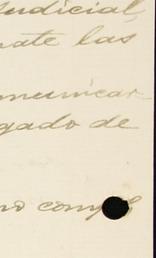 Judicial,
nate las
omunicar
gado de
no comp